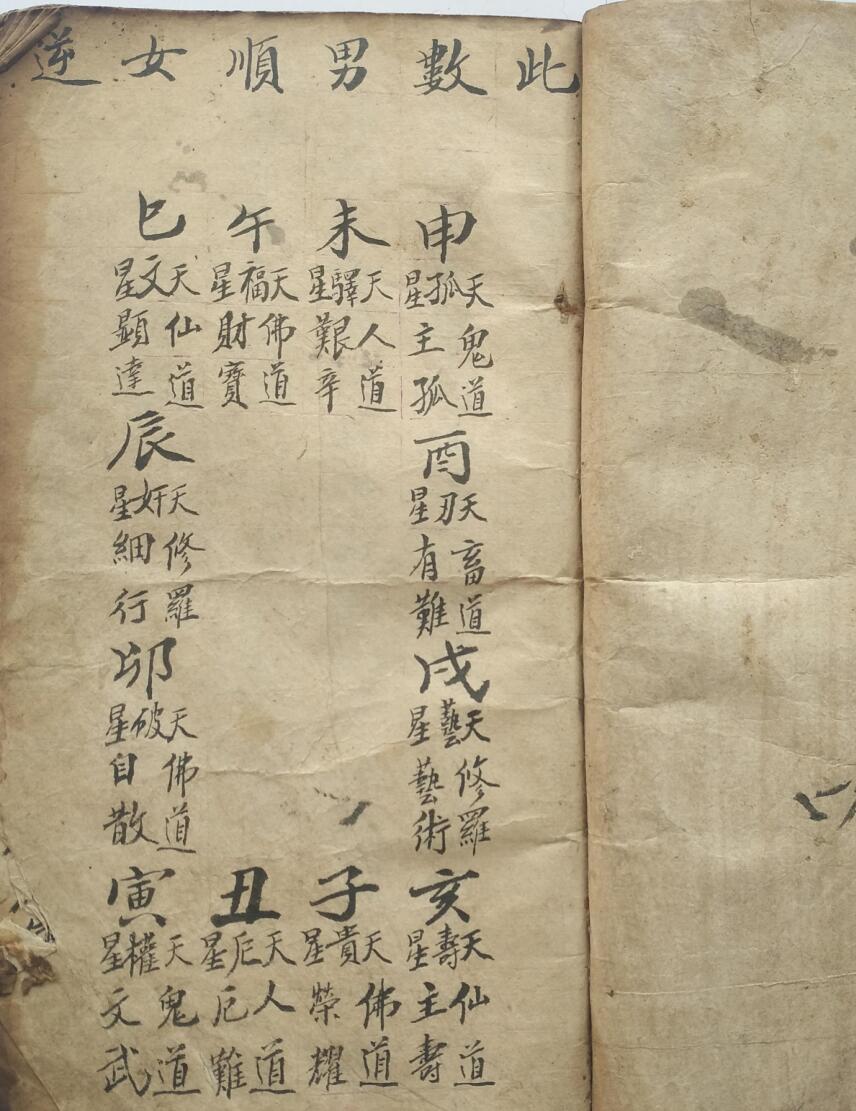 此數男順女逆
申
天孤星
鬼道
主孤
酉
天刃星
畜道
有難
戌
天藝星
修羅
藝術
亥
天壽星
仙道
主壽
未
天驛星
人道
艱辛
子
天貴星
佛道
榮耀
午
天福星
佛道
財寶
丑
天厄星
人道
厄難
巳
天文星
仙道
顯達
辰
天奸星
修羅
細行
卯
天破星
佛道
自散
寅
天權星
鬼道
文武